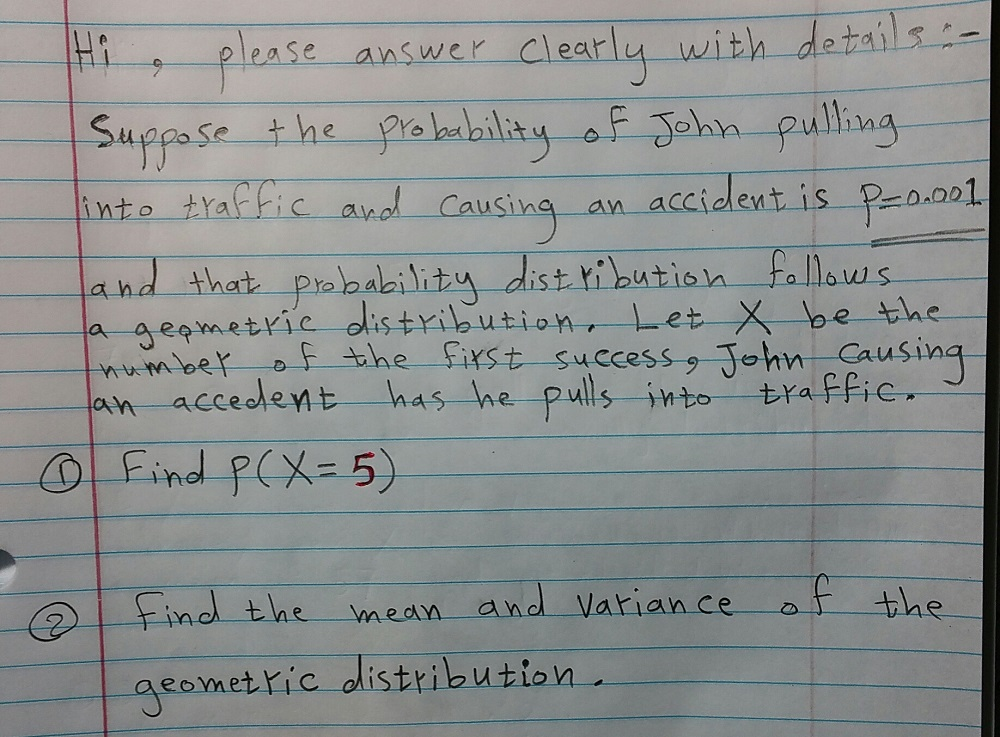 Hi, please answer clearly with details:-
Suppose the probability of John pulling
into traffic and causing an accident is P=0.001
and that probability distribution follows
a geometric distribution. Let X be the
number of the first success, John causing
an accedent has he pulls into traffic.
① Find P(X=5)
② Find the mean and variance of the
geometric distribution.